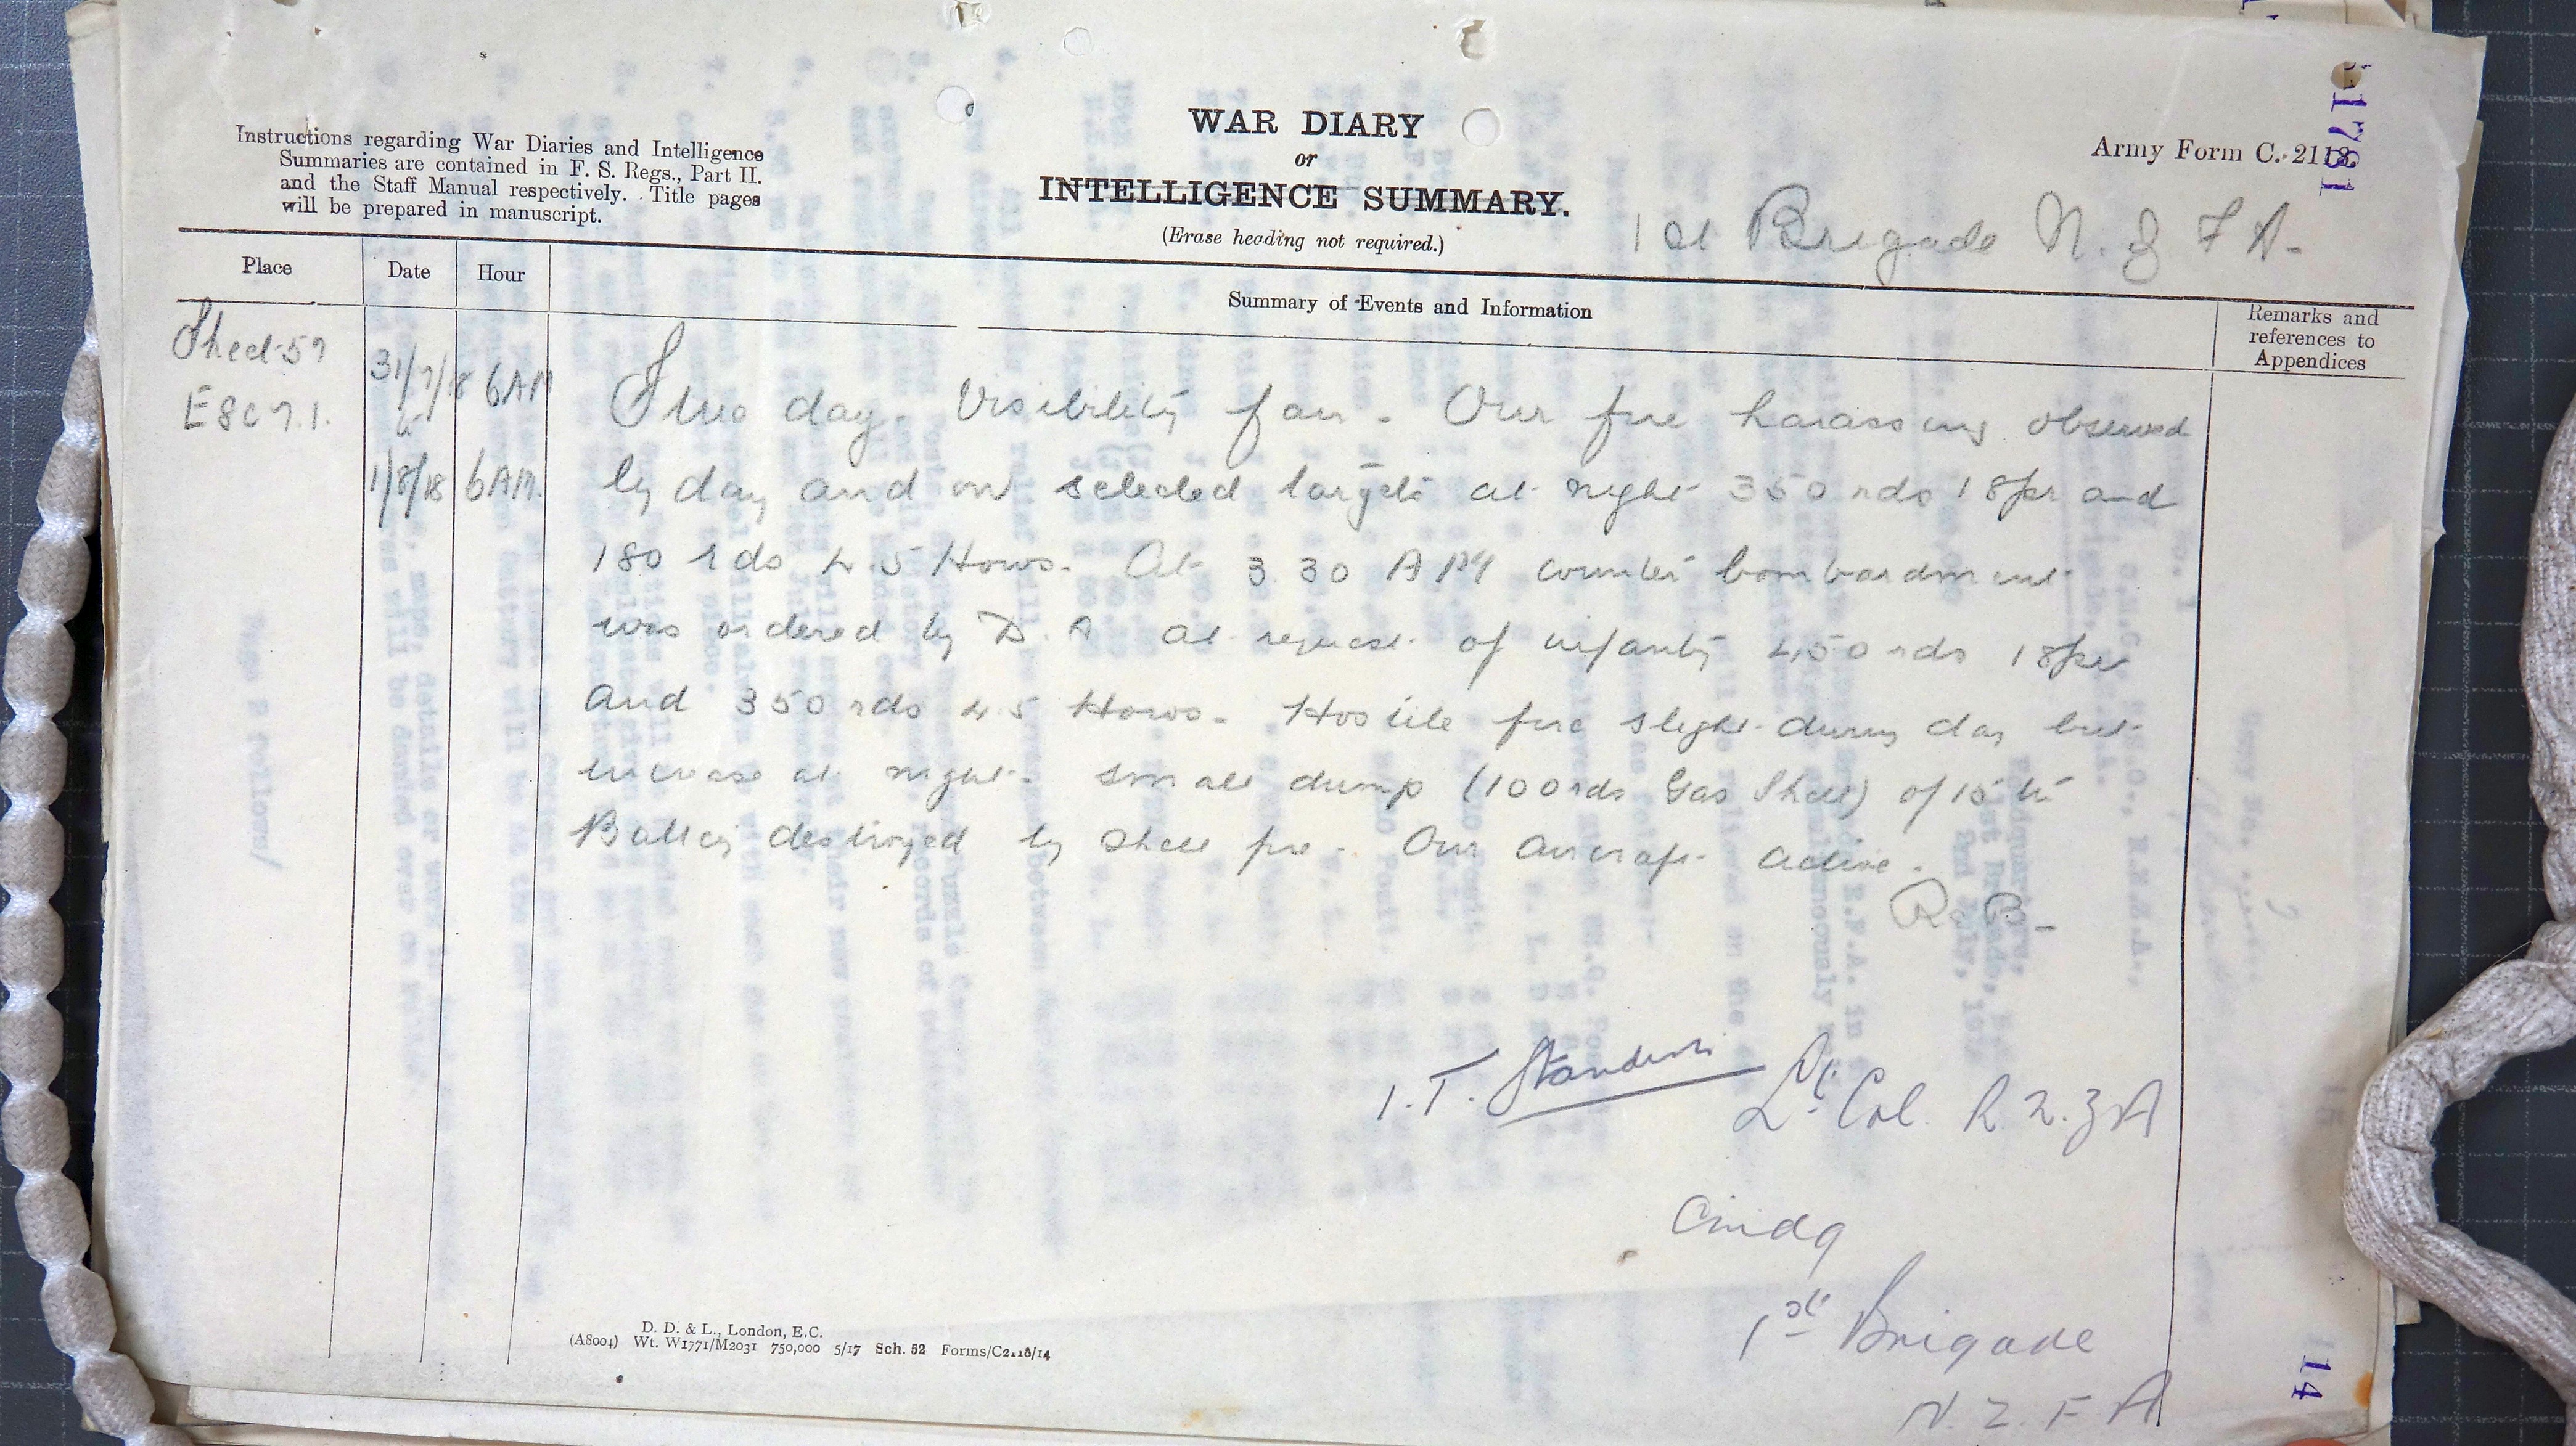 Instructions regarding War Diaries and Intelligence
Summaries are contained in F. S. Regs., Part II.
and the Staff Manual respectively. Title pages
will be prepared in manuscript.
WAR DIARY
or
INTELLIGENCE SUMMARY.
(Erase heading not required.)
Army Form C. 2118.
1781
1st Brigade N. Z F A.
Place
Date
Hour
Summary of Events and Information
Remarks and
references to
Appendices
Sheet 57
E8C 7.1.
31/7/18 6AM
to
1/8/18 6AM.
Fine day. Visibility fair. Our fire harassing observed
by day and on selected targets at night 350 rds 18pr and
180 rds 4.5 Hows. At 3.30 AM counter bombardment
was ordered by D. A at request of infantry 450 rds 18pr
and 350 rds 4.5 Hows. Hostile fire slight during day but
increase at night. Small dump (100rds Gas Shell) of 15th
Battery destroyed by shell fire. Our aircraft active.
I. T. Standish Lt. Col. R.N.Z A
Cmdg
1st Brigade
N. Z. F A
D. D. & L., London, E.C.
(A8004) Wt. W1771/M2031 750,000 5/17 Sch. 52 Forms/C2118/14
14